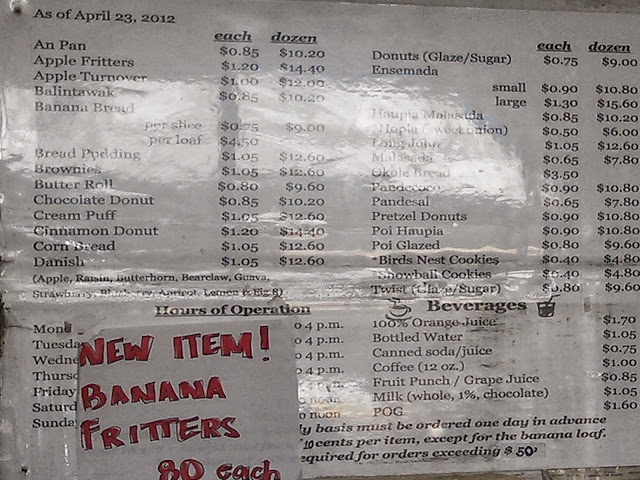 As of April 23, 2012
each dozen
An Pan $0.85 $10.20
Apple Fritters $1.20 $14.40
Apple Turnover $1.00 $12.00
Balintawak $0.85 $10.20
Banana Bread
per slice $0.75 $9.00
per loaf $4.50
Bread Pudding $1.05 $12.60
Brownies $1.05 $12.60
Butter Roll $0.80 $9.60
Chocolate Donut $0.85 $10.20
Cream Puff $1.05 $12.60
Cinnamon Donut $1.20 $14.40
Corn Bread $1.05 $12.60
Danish $1.05 $12.60
(Apple, Raisin, Butterhorn, Bearclaw, Guava,
Strawberry, Blueberry, Apricot, Lemon & Fig 8)
Hours of Operation
Mond
Tuesda
Wedne
Thursd
Friday
Saturd
Sunda
o 4 p.m.
o 4 p.m.
o 4 p.m.
o 4 p.m.
p.m.
o noon
o noon
NEW ITEM!
BANANA
FRITTERS
80 each
each dozen
Donuts (Glaze/Sugar) $0.75 $9.00
Ensemada
small $0.90 $10.80
large $1.30 $15.60
Haupia Malasada $0.85 $10.20
Hopia (sweet onion) $0.50 $6.00
Long John $1.05 $12.60
Malasada $0.65 $7.80
Okole Bread $3.50
Pandecoco $0.90 $10.80
Pandesal $0.65 $7.80
Pretzel Donuts $0.90 $10.80
Poi Haupia $0.90 $10.80
Poi Glazed $0.80 $9.60
*Birds Nest Cookies $0.40 $4.80
*Snowball Cookies $0.40 $4.80
Twist (Glaze/Sugar) $0.80 $9.60
Beverages
100% Orange Juice $1.70
Bottled Water $1.05
Canned soda/juice $0.75
Coffee (12 oz.) $1.00
Fruit Punch / Grape Juice $0.85
Milk (whole, 1%, chocolate) $1.05
POG $1.60
ly basis must be ordered one day in advance
10 cents per item, except for the banana loaf.
equired for orders exceeding $ 50